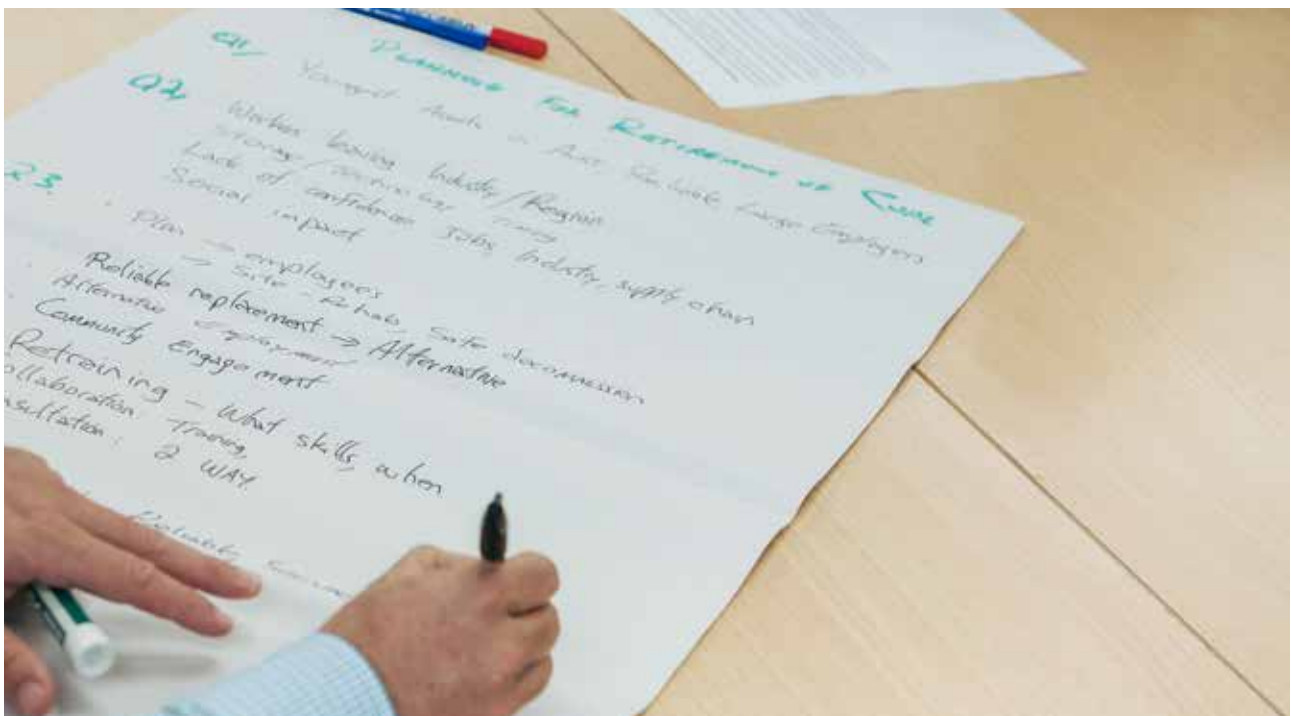 Q1/ PLANNING FOR RETIREMENT OF
Youngest Assets in Aust, Large Employers
Q2,
Worker leaving Industry/Region
Storage /
Lack of confidence Jobs, Industry, supply chain
Social impact
Q3.
Plan → employees
→ Site - Rehab, Safe decommission
Reliable replacement → Alternative
Alternative employment
Community Engagement
Retraining - What skills, when
ollaboration Training,
nsultation: 2 WAY.
Reliable